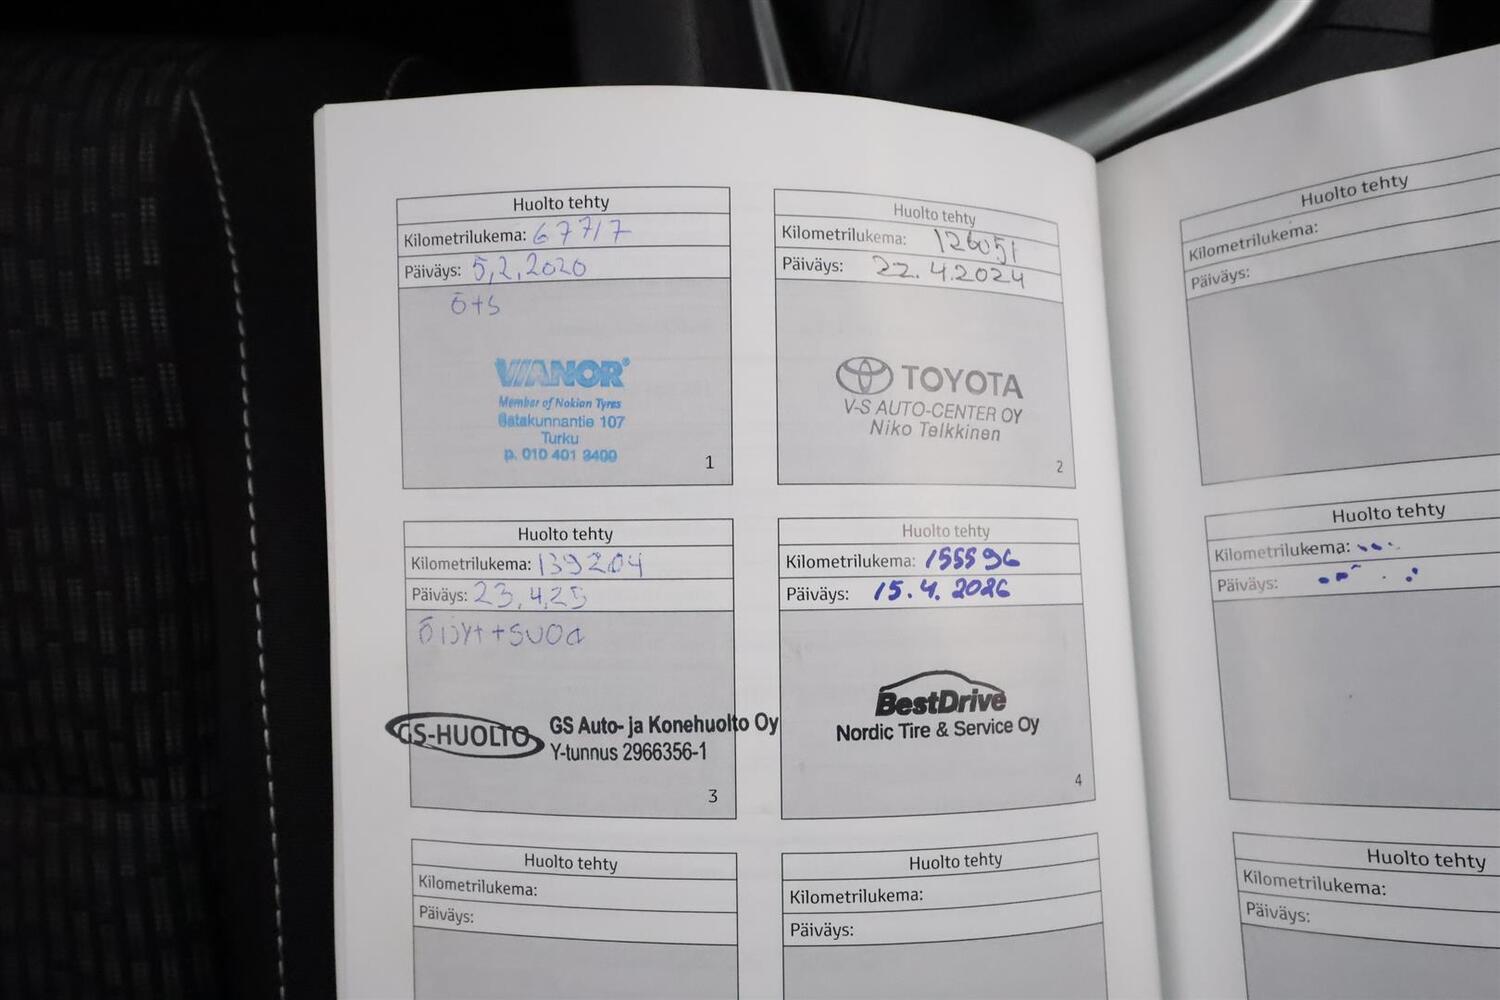 Huolto tehty
Kilometrilukema: 67717
Päiväys: 5.2.2020
Ö+S
VIANOR®
Member of Nokian Tyres
Satakunnantie 107
Turku
p. 010 401 3400
1
Huolto tehty
Kilometrilukema: 126051
Päiväys: 22.4.2024
TOYOTA
V-S AUTO-CENTER OY
Niko Telkkinen
2
Huolto tehty
Kilometrilukema: 139204
Päiväys: 23.4.25
GS-HUOLTO
GS Auto- ja Konehuolto Oy
Y-tunnus 2966356-1
3
Huolto tehty
Kilometrilukema: 155596
Päiväys: 15.4.2026
BestDrive
Nordic Tire & Service Oy
4
Huolto tehty
Kilometrilukema:
Päiväys:
Huolto tehty
Kilometrilukema:
Päiväys:
Huolto tehty
Kilometrilukema:
Päiväys:
Huolto tehty
Kilometrilukema:
Päiväys:
Huolto tehty
Kilometrilukema:
Päiväys: